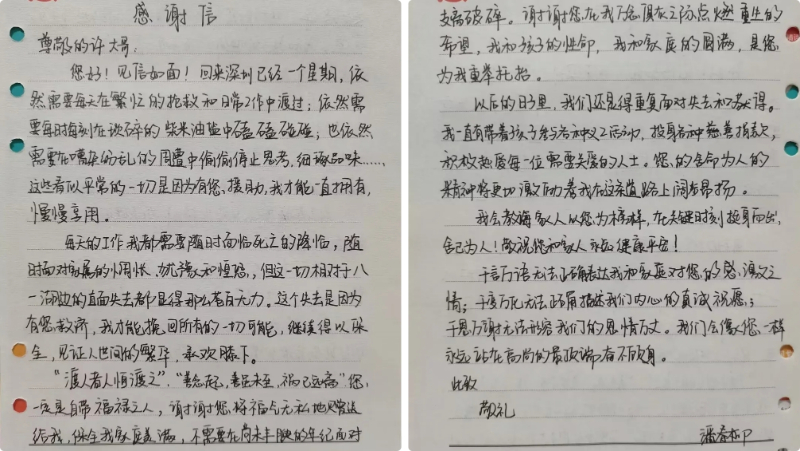 感谢信
尊敬的许大哥:
您好！见信如面！回来深圳已经一个星期，依
然需要每天在繁忙的抢救和日常工作中渡过；依然需
要每时每刻在琐碎的柴米油盐中磕磕碰碰；也依然
需要在嘈杂纷乱的周遭中偷偷停止思考，细琢品味……
这些看似平常的一切是因为有您、援助，我才能一直拥有，
慢慢享用。
每天的工作我都需要随时面临死亡的降临，随
时面对家属的惆怅、犹豫和恒愆，但这一切相对于八一
湖边的直面失去都显得那么苍白无力。这个失去是因为
有您救济，我才能挽回所有的一切可能，继续得以保
全，见证人世间的繁华，承欢膝下。
“渡人者人恒渡之”，“善念起，善虽未至，福已远离”您，
一定是自带福禄之人，谢谢您将福气无私地赠送
给我，保全我家庭美满，不需要在尚未丰腴的年纪面对
支离破碎。谢谢您，在我万念俱灰之际点燃重生的
希望，我和孩子的性命，我和家庭的圆满，是您
为我重举托抬。
以后的日子里，我们还是得重复面对失去和获得。
我一直有带着孩子参与各种义工活动，投身各种慈善捐款，
积极热度每一位需要关爱的人士。您的舍命为人的
精神将更加激励着我在这条道路上阔步昂扬。
我会教诲家人以您为榜样，在关键时刻挺身而出，
舍己为人！敬祝您和家人永远健康平安！
千言万语无法正确表达我和家庭对您的感激之
情；千变万化无法准确描述我们内心的真诚祝愿；
千恩万谢无法形容我们的恩情万丈。我们会像您一样
永远站在高尚的最顶端奋不顾身。
此致
敬礼
潘春柳